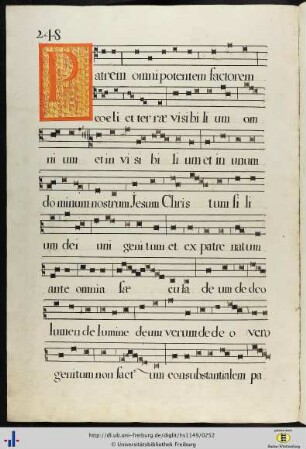 248
Patrem omnipotentem factorem
coeli et terræ visibi li um om
ni um et in vi si bi li um et in unum
dominum nostrum Jesum Chris tum fi li
um dei uni geni tum et ex patre natum
ante omnia sæ cu la de um de deo
lumen de lumine deum verum de de o vero
genitum non fact um consubstantialem pa
http://dl.ub.uni-freiburg.de/diglit/hs1149/0252
© Universitätsbibliothek Freiburg
Baden-Württemberg